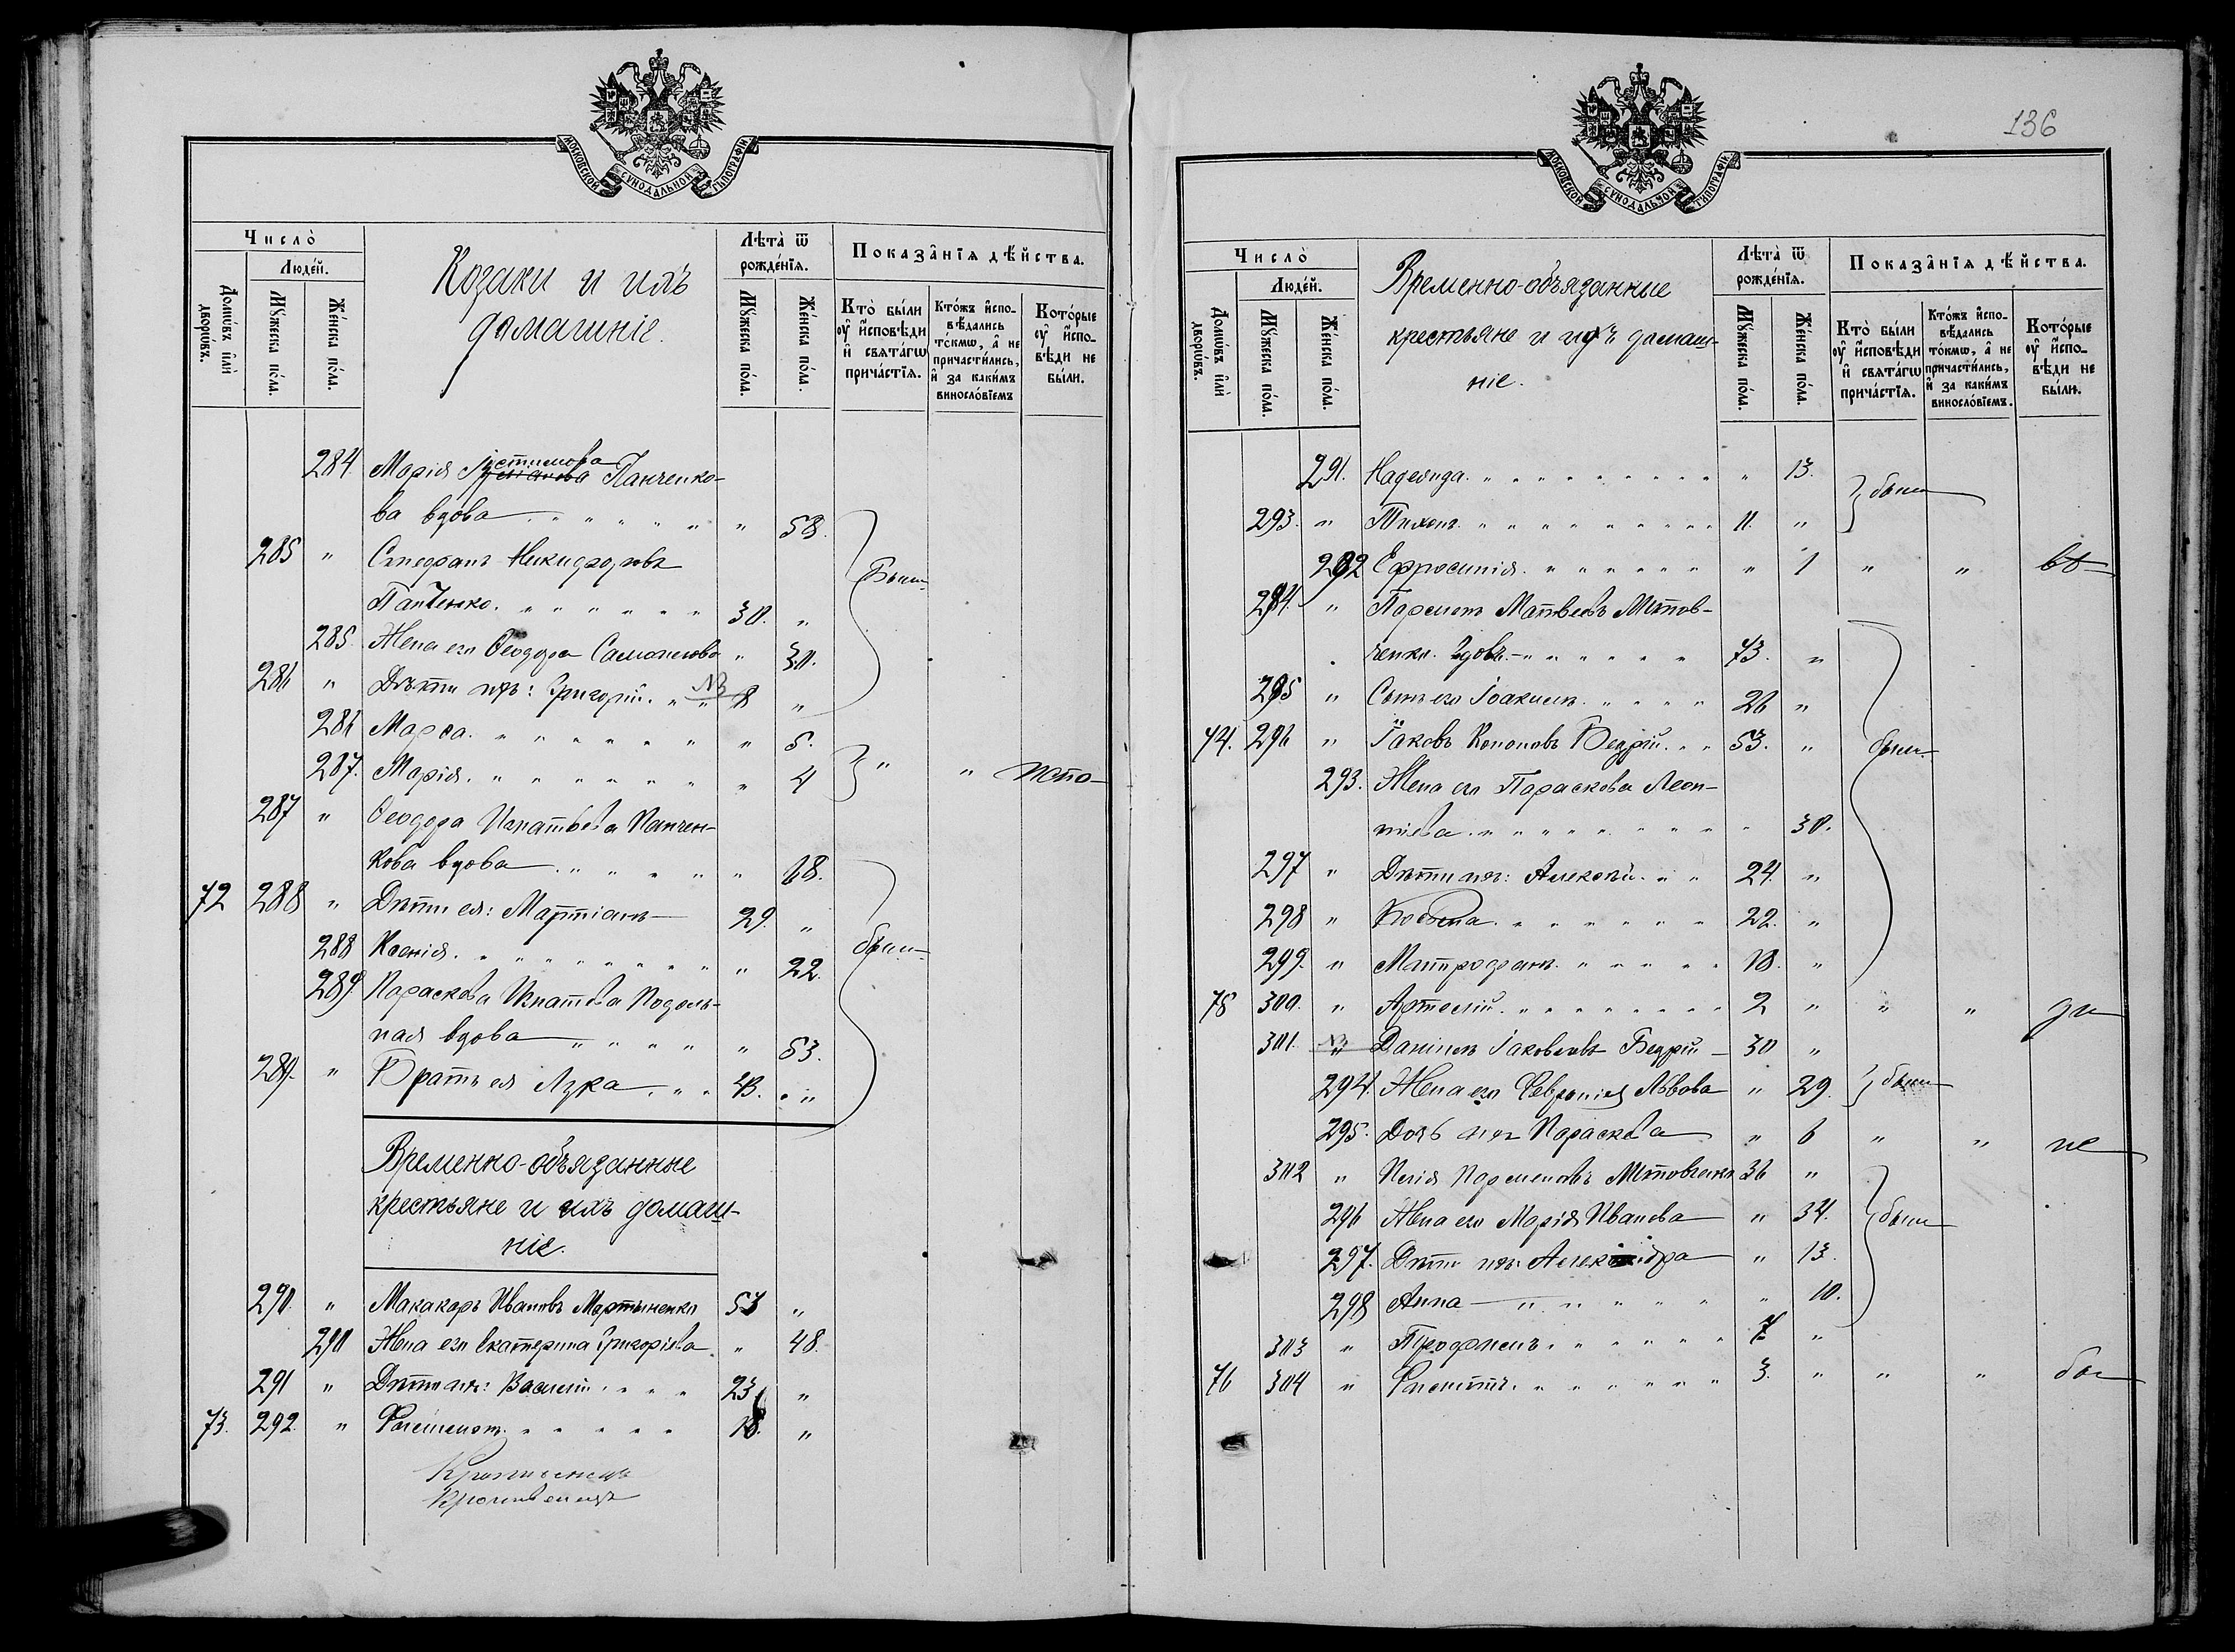 МОСКОВСКОЙ СѴНОДАЛЬНОЙ ТѴПОГРАФІИ.
Число̀
Люде́й.
Домѡ́въ и҆лѝ дворѡ́въ.
Мꙋ́жеска по́ла.
Же́нска по́ла.
Козаки и ихъ
домашніе.
Лѣта̀ ѿ рожде́нїѧ.
Мꙋ́жеска по́ла.
Же́нска по́ла.
Показа̑нїѧ дѣ́йства.
Кто̀ бы́ли оу҆ и҆сповѣ́ди и҆ свѧта́гѡ прича́стїѧ.
Кто́жъ и҆спо-вѣ́дались то́кмѡ, а҆ не причасти́лись, и҆ за каки́мъ виносло́вїемъ
Кото́рые оу҆ и҆спо-вѣ́ди не бы́ли.
284. Марія Іустинова Панченко-
ва вдова " 58.
285 " Стефанъ Никифоровъ
Панченко. 30. "
были
285. Жена его Ѳеодора Самоилова " 30.
286 " Дѣти ихъ: Григорій. " №3 8 "
286 Марѳа. " 5.
287. Марія. " 4 " "
287 " Ѳеодора Игнатьева Панчен-
кова вдова " 68.
72 288 " Дѣти ея: Мартіанъ 29. "
288 Ксенія. " 22.
были
289. Параскева Игнатьева Подоль-
ная вдова " 53.
289. " Братъ ея Лука. 43. "
Временно-объязанные
крестьяне и ихъ домаш-
ніе.
290. " Макакаръ Ивановъ Мартыненко 53 "
290 Жена его Екатерина Григоріева " 48.
291 " Дѣти ихъ: Василій. 23 "
73. 292. " Филимонъ. 18. "
136
МОСКОВСКОЙ СѴНОДАЛЬНОЙ ТѴПОГРАФІИ.
Число̀
Люде́й.
Домѡ́въ и҆лѝ дворѡ́въ.
Мꙋ́жеска по́ла.
Же́нска по́ла.
Временно-объязанные
крестьяне и ихъ домаш-
ніе.
Лѣта̀ ѿ рожде́нїѧ.
Мꙋ́жеска по́ла.
Же́нска по́ла.
Показа̑нїѧ дѣ́йства.
Кто̀ бы́ли оу҆ и҆сповѣ́ди и҆ свѧта́гѡ прича́стїѧ.
Кто́жъ и҆спо-вѣ́дались то́кмѡ, а҆ не причасти́лись, и҆ за каки́мъ виносло́вїемъ.
Кото́рые оу҆ и҆спо-вѣ́ди не бы́ли.
291. Надежда. " 13.
были
293. " Тихонъ. 11. "
292 Ефросинія. " 1 " "
294. " Парменъ Матвеевъ Метов-
ченко. Вдовъ. 73. "
295 " Сынъ его Іоакимъ. 26 "
74. 296 " Іаковъ Кононовъ Бедрій. 53. " были
293. Жена его Параскева Леон-
тіева. " 30.
297 " Дѣти ихъ: Алексѣй. 24. "
298 " Косьма. 22. "
299. " Митрофанъ. 18. "
75 300. " Артемій. 2 " " "
301. №3 Даніилъ Іаковлевъ Бедрій 30 "
294. Жена его Февронія Львова " 29. были
295. Дочь ихъ Параскева " 6 " " не
302 " Илія Парменовъ Метовченко 36 "
296 Жена его Марія Иванова " 34. были
297. Дѣти ихъ: Александра " 13.
298 Анна " 10.
303 " Трофимъ. 7 "
76 304 " Филиппъ. 3. " " "